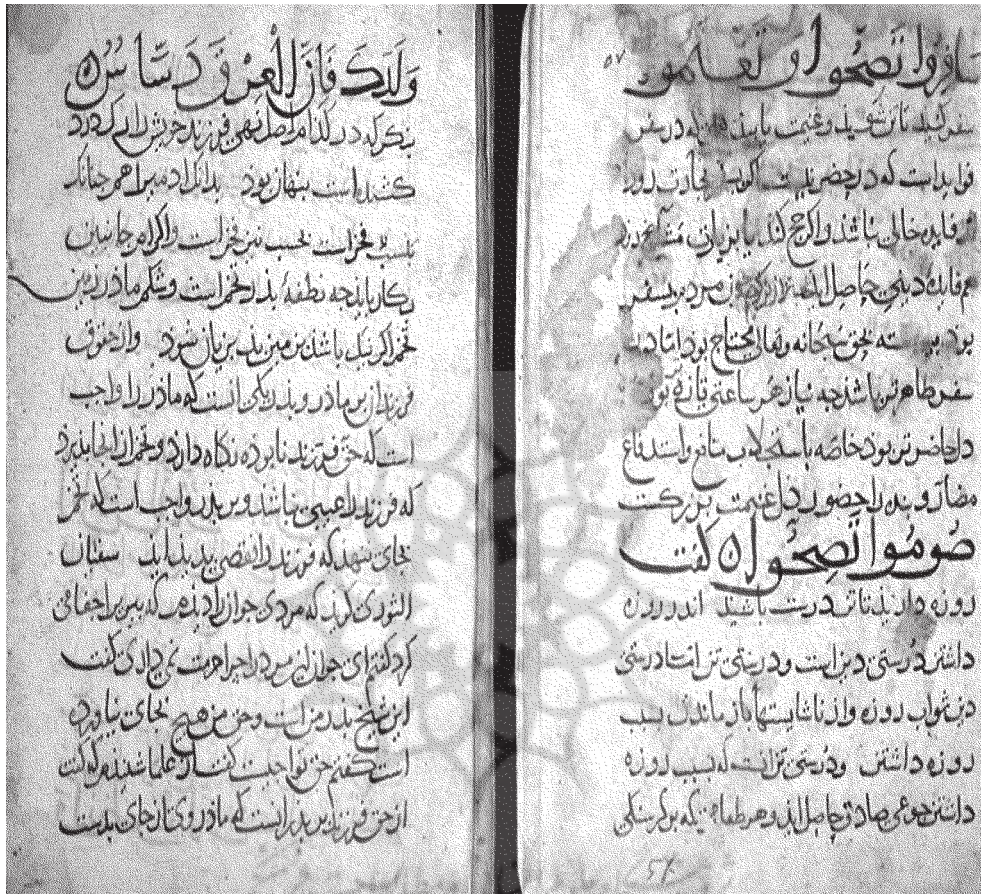 سافروا تصحوا و تغنموا ٥٧
سفر کنید تا تن و غنیمت یابید که در سفر
فوایداست که در حضر نیست اگر سفر تجارت بود از
فایده خالی نباشد و اگر حج کند یا بزیارت
هم فایدۀ دینی حاصل اید مرد در سفر
بود پیوسته بحق سبحانه وتعالی محتاج بود اما در
سفر ظاهرتر باشد چه نیاز هر ساعتی تازه بود
دل حاضرتر بود خاصه باستجلاب منافع و استدفاع
مضار و بنده را حضور دل غنیمت بزرکست
صوموا تصحوا کفت
روزه دارید تا تندرست باشید اندر روزه
داشتن درستی دین است ودرستی تن اما درستی
دین ثواب روزه واز ناشایستها باز ماندن بسبب
روزه داشتن ودرستی تن انست که بسبب روزه
داشتن جوعی صادق حاصل اید و هر طعام که بر کرسنکی
٥٧
ولدک فان العرق دساس
بنکر که در کدام اصل نهی فرزند خویش را که درد
کشنده است بنهان بود بدانک ادمیرا همچنانک
بنسب فخرست بحسب نیز فخرست واکر از جانبین
در کار باید چه نطفۀ بذر تخم است وشکم ماذر زمین
تخم اکر نیک باشد زمین بد بزیان شود واز حقوق
فرزند از بر ماذر و بذر یکی انست که ماذر را واجب
است که حق فرزند نابوده نکاه دارد و تخم از انجا بذیرد
که فرزند را عیبی نباشد و بر بذر واجب است که تخم
بجای نهد که فرزند را نقصی بدید نیاید سفیان
الثوری کوید که مردی جوان را دیدم که بیر را جفا می
کرد کفتم ای جوان این مرد را چرا حرمت نمی داری کفت
این شیخ بذر من است وحق من هیچ بجای نیاورده
است کفتم حق تو چیست کفت از علما شنیدم که کفت
از حق فرزند بر بذر انست که ماذر وی نه از جای بدست